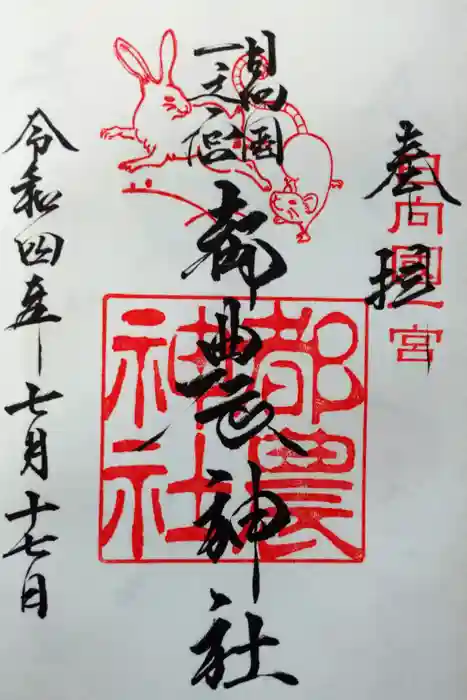 奉拝
日向國一宮
日向國
一之宮
都農神社
都農
神社
令和四年七月十七日